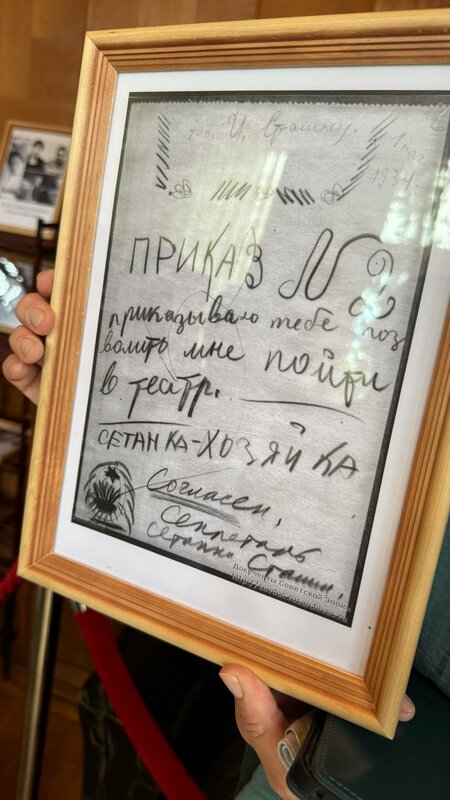 тов. И. Сталину.
1 мая
1934 г.
ПРИКАЗ №2
приказываю тебе поз
волить мне пойти
в театр.
СЕТАНКА-ХОЗЯЙКА
Согласен,
Секретарь
Сетанки Сталин.
Документы Советской Эпохи